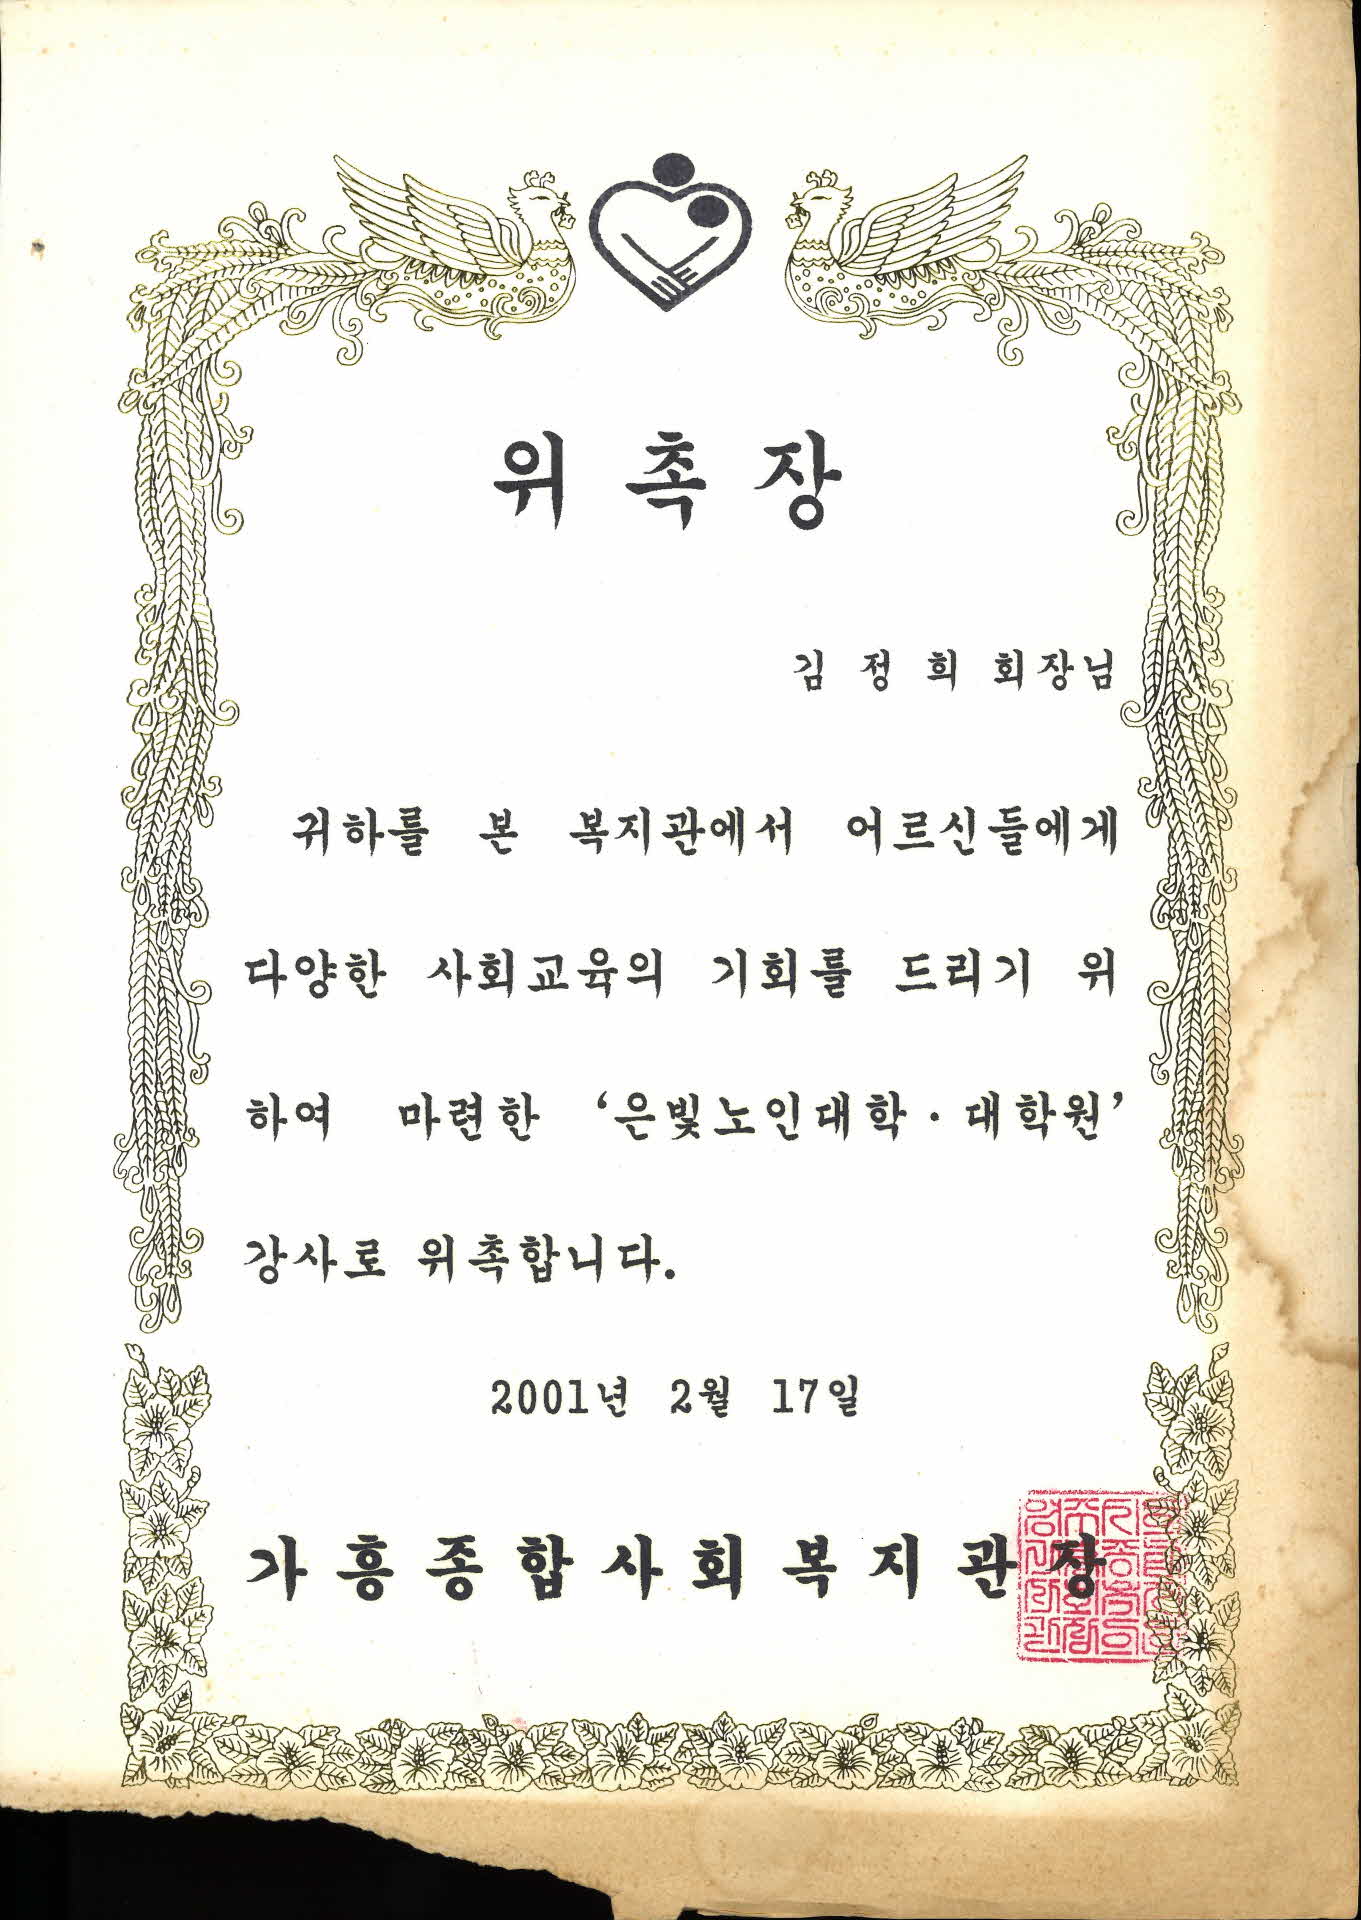 위 촉 장
김 정 희 회장님
귀하를 본 복지관에서 어르신들에게
다양한 사회교육의 기회를 드리기 위
하여 마련한 ‘은빛노인대학·대학원’
강사로 위촉합니다.
2001년 2월 17일
가흥종합사회복지관장